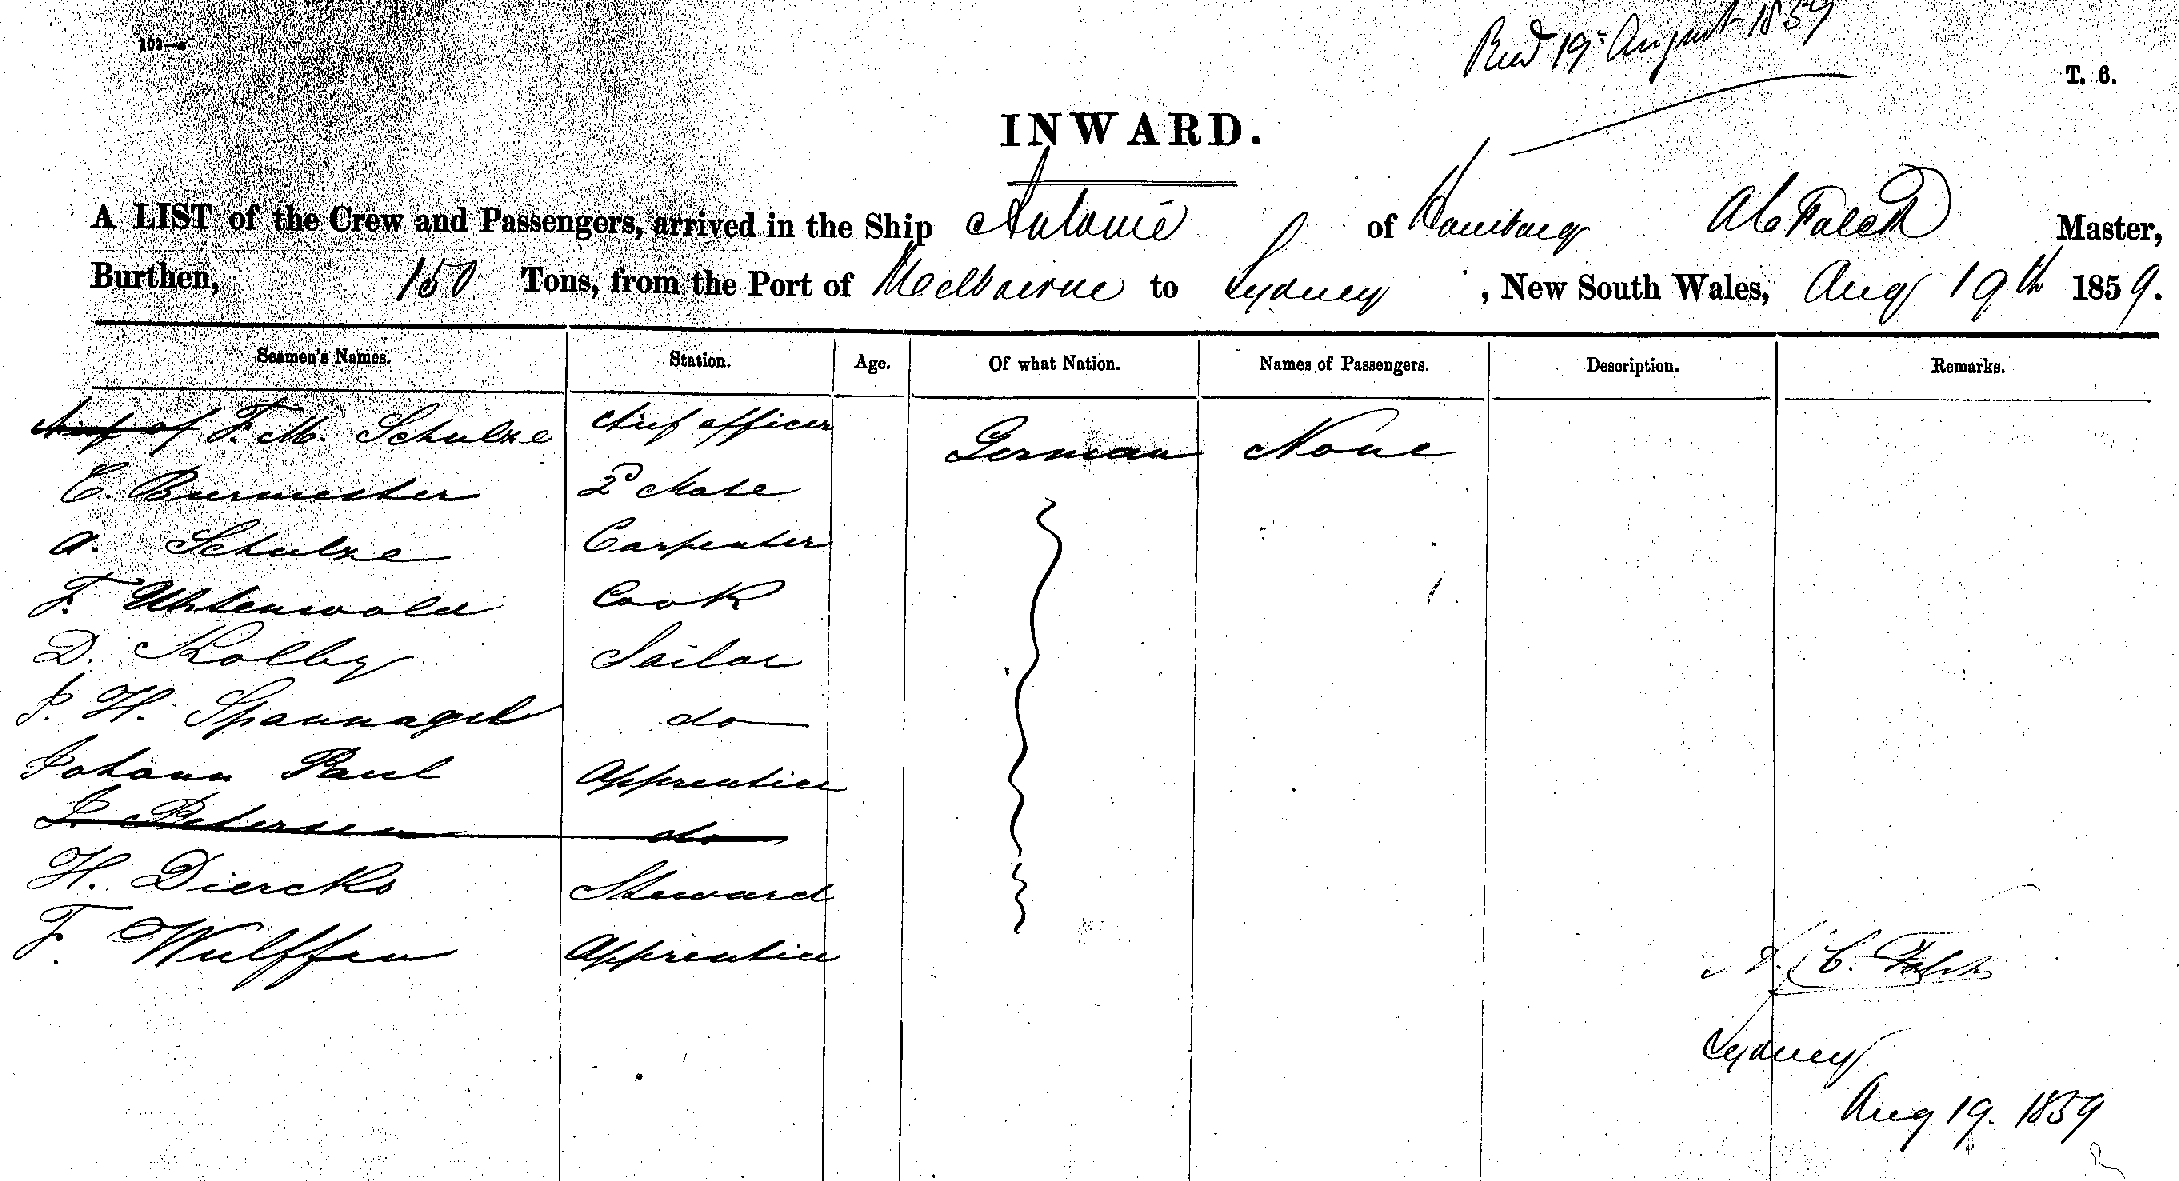 Recd 19th August 1859
T. 6.
INWARD.
A LIST of the Crew and Passengers, arrived in the Ship Antonie of Hamburg A C Falck Master,
Burthen, 150 Tons, from the Port of Melbourne to Sydney, New South Wales, Aug 19th 1859.
Seamen's Names. Station. Age. Of what Nation. Names of Passengers. Description. Remarks.
F. M. Schulze Chief officer German None
C. Burmester 2d Mate
A. Schulze Carpenter
F. Uhtenwold Cook
D. Kolby Sailor
J. H. Spannagel do
Johann Paul Apprentice
J. Petersen do
H. Diercks Steward
F. Wulffen Apprentice
A. C. Falck
Sydney
Aug 19. 1859